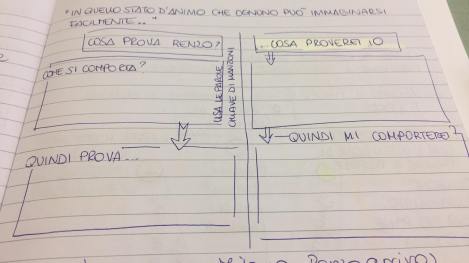 "IN QUELLO STATO D'ANIMO CHE OGNUNO PUÒ IMMAGINARSI
FACILMENTE.."
COSA PROVA RENZO?
..COSA PROVEREI IO
COME SI COMPORTA?
USA LE PAROLE
CHIAVE DI MANZONI
QUINDI MI COMPORTEREI?
QUINDI PROVA...